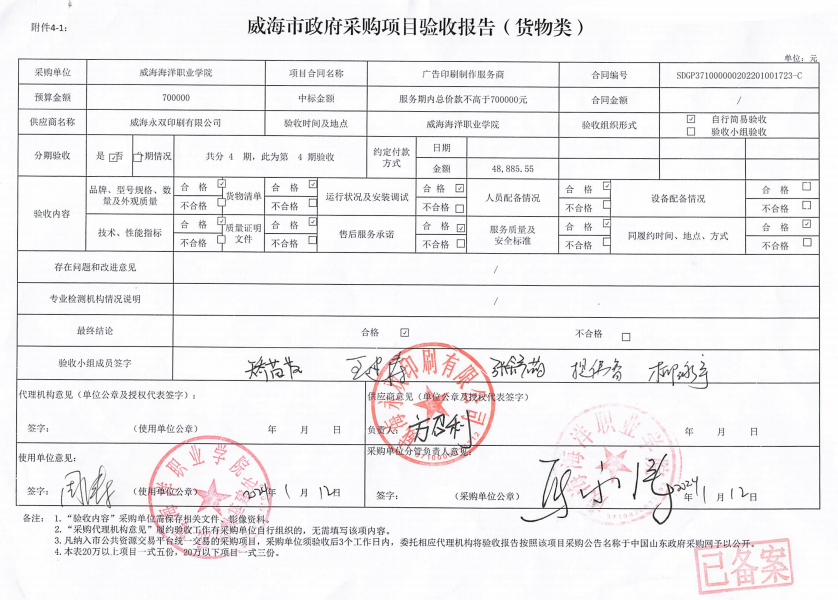 附件4-1:
威海市政府采购项目验收报告（货物类）
单位：元
采购单位 威海海洋职业学院 项目合同名称 广告印刷制作服务商 合同编号 SDGP371000000202201001723-C
预算金额 700000 中标金额 服务期内总价款不高于700000元 合同金额 /
供应商名称 威海永双印刷有限公司 验收时间及地点 威海海洋职业学院 验收组织形式 ☑ 自行简易验收
□ 验收小组验收
分期验收 是 ☑ 否 □ 分期情况 共分 4 期，此为第 4 期验收 约定付款方式 日期
金额 48,885.55
验收内容
品牌、型号规格、数量及外观质量 合 格 ☑ 货物清单 合 格 ☑ 运行状况及安装调试 合 格 ☑ 人员配备情况 合 格 ☑ 设备配备情况 合 格 □
不合格 □ 不合格 □ 不合格 □ 不合格 □ 不合格 □
技术、性能指标 合 格 ☑ 质量证明文件 合 格 ☑ 售后服务承诺 合 格 ☑ 服务质量及安全标准 合 格 ☑ 同履约时间、地点、方式 合 格 ☑
不合格 □ 不合格 □ 不合格 □ 不合格 □ 不合格 □
存在问题和改进意见 /
专业检测机构情况说明 /
最终结论 合格 ☑ 不合格 □
验收小组成员签字
代理机构意见（单位公章及授权代表签字）：
签字： （使用单位公章） 年 月 日
供应商意见（单位公章及授权代表签字）
负责人： 年 月 日
使用单位意见：
签字： （使用单位公章） 2024年 1月 12日
采购单位分管负责人意见：
签字： （采购单位公章） 2024年 1月 12日
备注： 1.“验收内容”采购单位需保存相关文件、影像资料。
2.“采购代理机构意见”履约验收工作有采购单位自行组织的，无需填写该项内容。
3.凡纳入市公共资源交易平台统一交易的采购项目，采购单位须验收后3个工作日内，委托相应代理机构将验收报告按照该项目采购公告名称于中国山东政府采购网予以公开。
4.本表20万以上项目一式五份，20万以下项目一式三份。
已备案